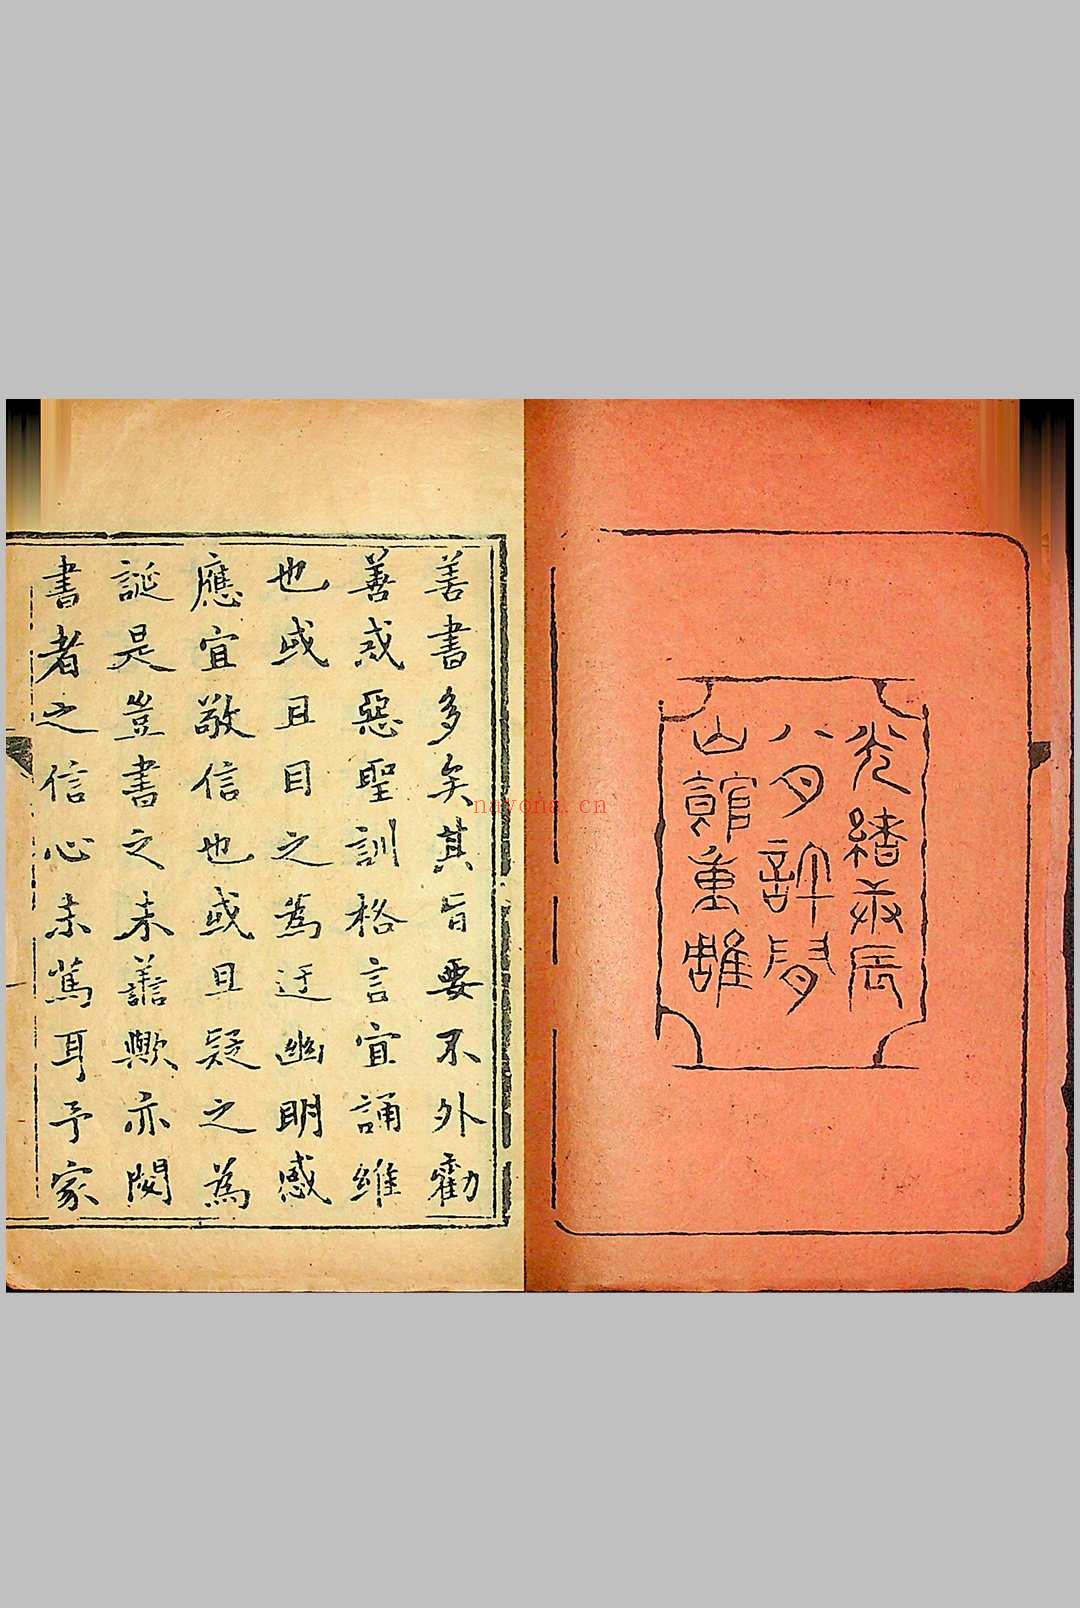 光緒庚辰
八月許
山館重雕
善書多矣其旨要不外勸
善戒惡聖訓格言宜誦維
也或且目之為迂幽明感
應宜敬信也或且疑之為
誕是豈書之未善歟亦閱
書者之信心未篤耳予家
nayona.cn